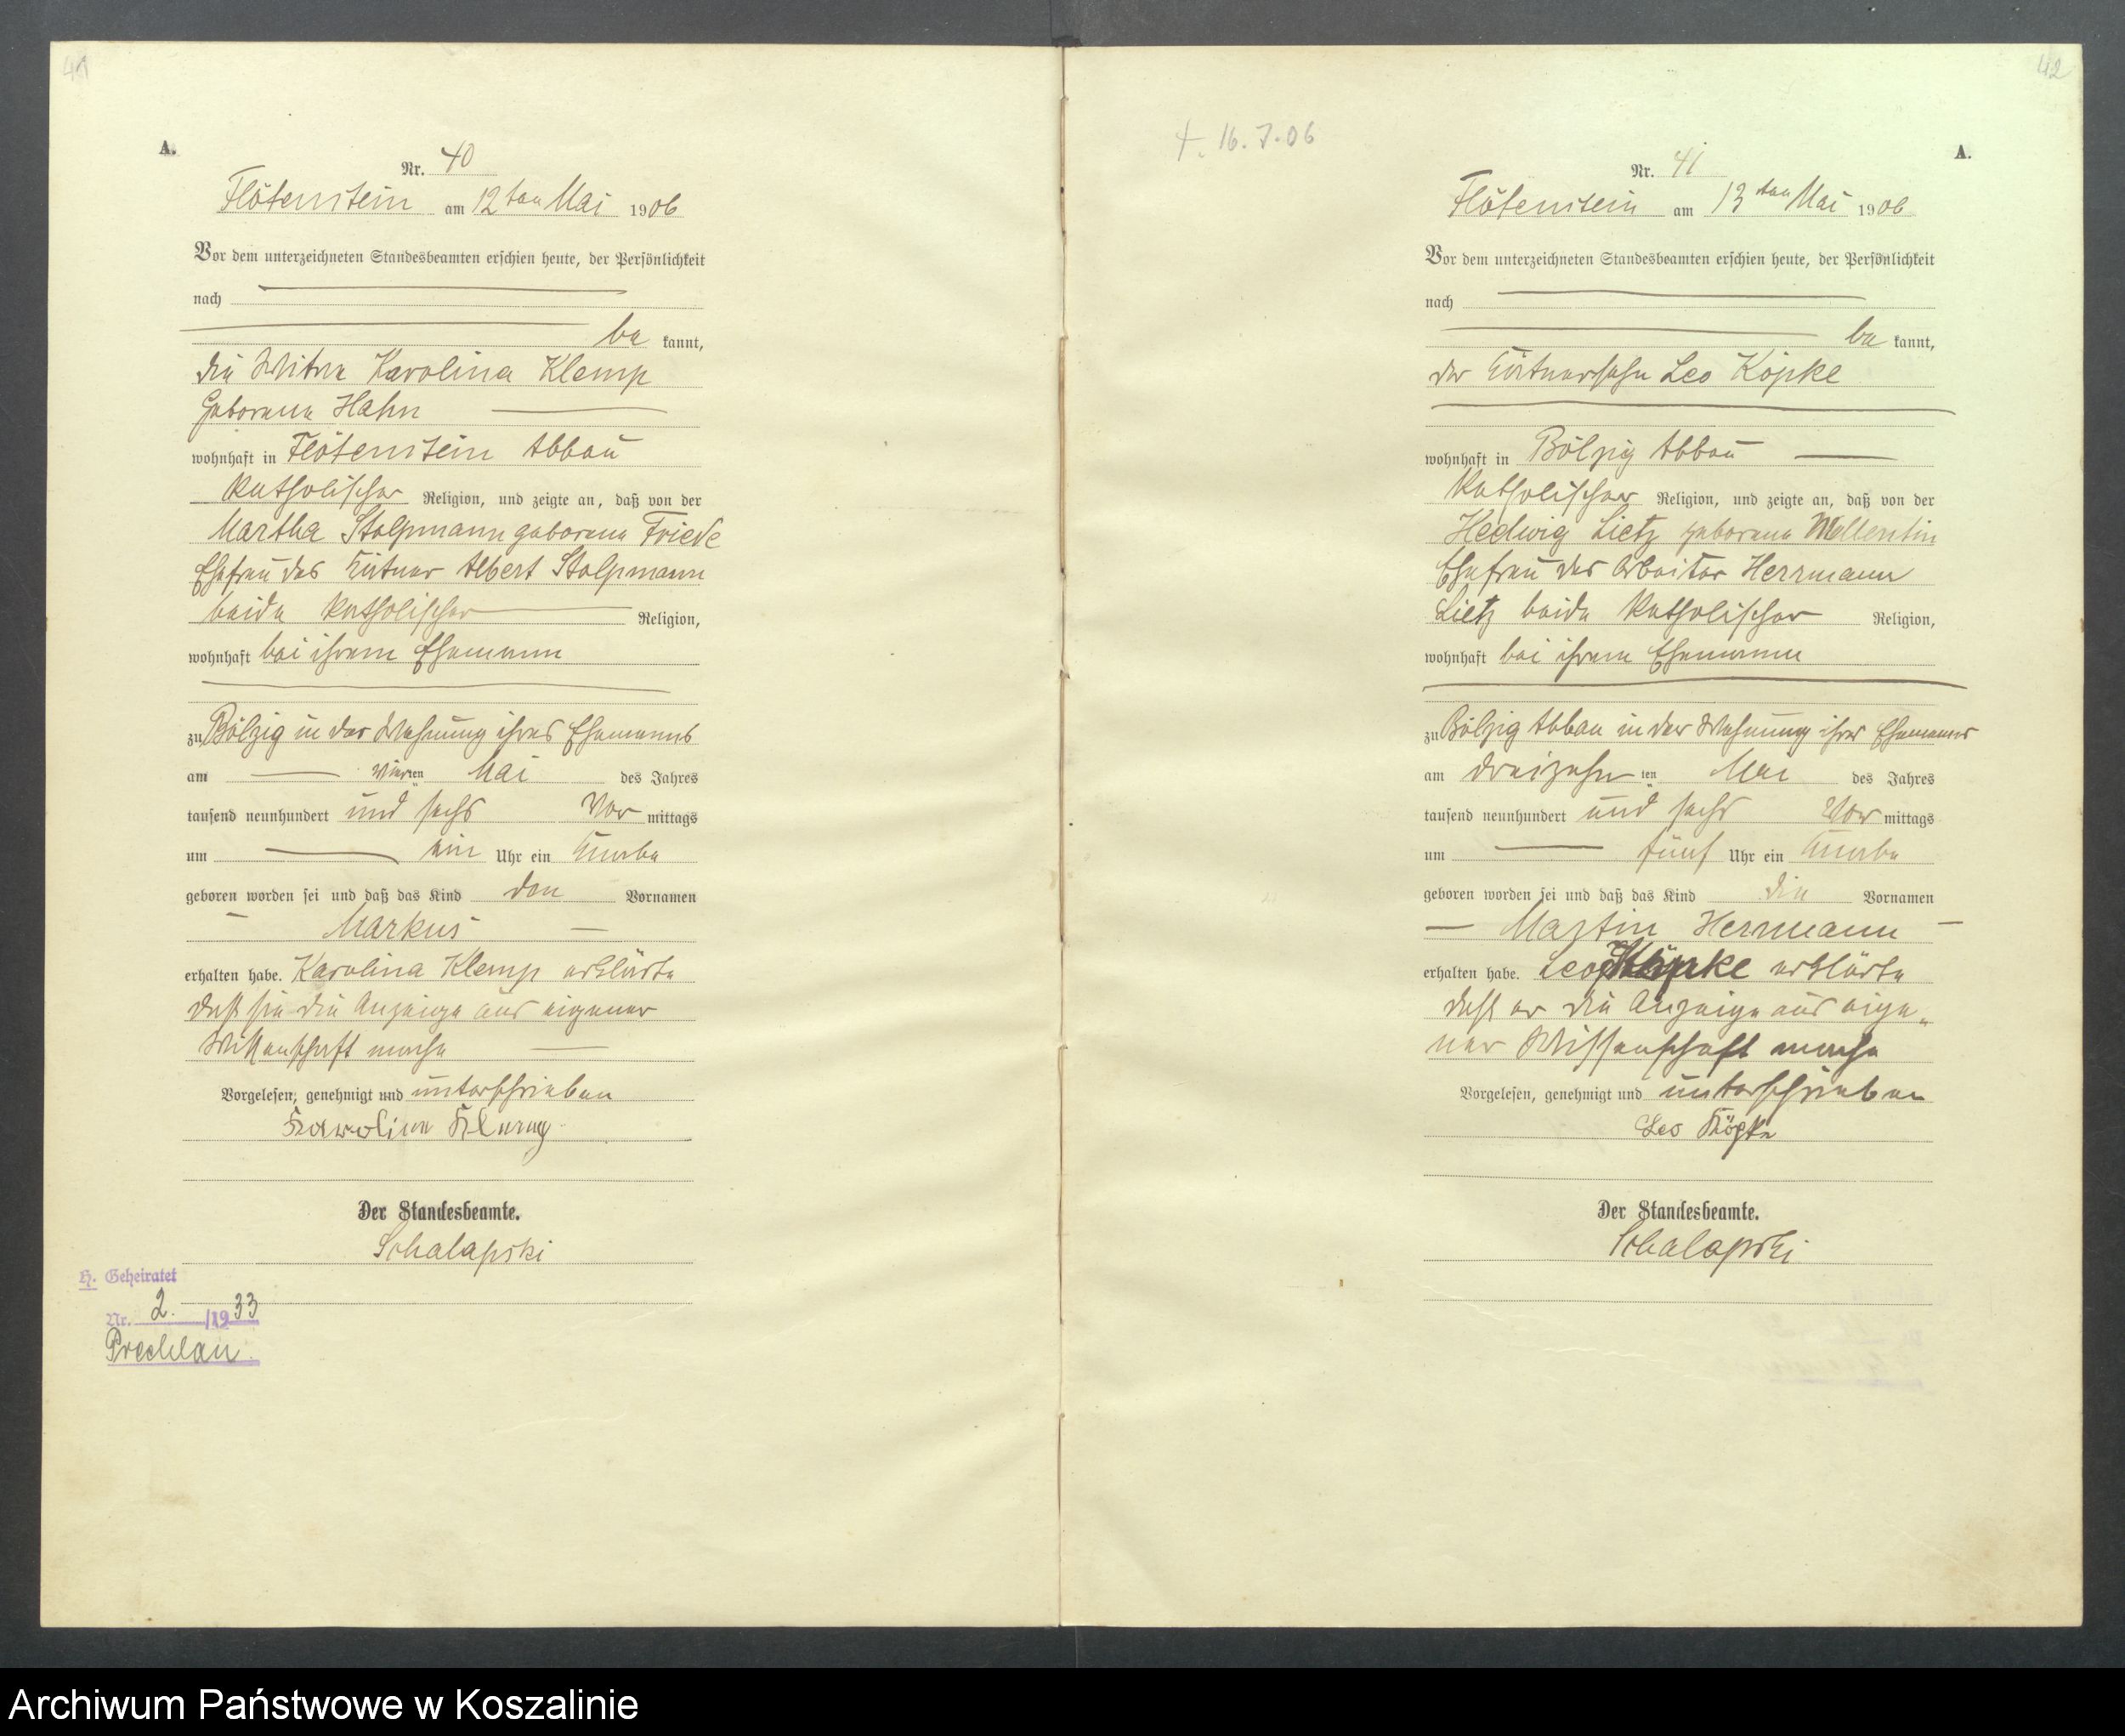 41
A.
Nr. 40
Flötenstein am 12ten Mai 1906
Vor dem unterzeichneten Standesbeamten erschien heute, der Persönlichkeit
nach
be kannt,
die Witwe Karolina Klemp
geborene Hahn
wohnhaft in Flötenstein Abbau
katholischer Religion, und zeigte an, daß von der
Martha Stolpmann geborene Friede
Ehefrau des Kätner Albert Stolpmann
beide katholischer Religion,
wohnhaft bei ihrem Ehemann
zu Bölzig in der Wohnung ihres Ehemanns
am vierten Mai des Jahres
tausend neunhundert und sechs Vor mittags
um ein Uhr ein Knabe
geboren worden sei und daß das Kind den Vornamen
Markus
erhalten habe. Karolina Klemp erklärte
daß sie die Anzeige aus eigener
Wissenschaft mache
Vorgelesen, genehmigt und unterschrieben
Karoline Klemp
Der Standesbeamte.
Schalapski
H. Geheiratet
Nr. 2. /1933
Prechlau.
42
A.
+. 16.7.06
Nr. 41
Flötenstein am 13ten Mai 1906
Vor dem unterzeichneten Standesbeamten erschien heute, der Persönlichkeit
nach
be kannt,
der Kätnersohn Leo Köpke
wohnhaft in Bölzig Abbau
katholischer Religion, und zeigte an, daß von der
Hedwig Lietz geborene Wollentin
Ehefrau des Arbeiter Herrmann
Lietz beide katholischer Religion,
wohnhaft bei ihrem Ehemann
zu Bölzig Abbau in der Wohnung ihres Ehemannes
am dreizehn ten Mai des Jahres
tausend neunhundert und sechs Vor mittags
um fünf Uhr ein Knabe
geboren worden sei und daß das Kind die Vornamen
Martin Herrmann
erhalten habe. Leo Köpke erklärte
daß er die Anzeige aus eige„
ner Wissenschaft mache
Vorgelesen, genehmigt und unterschrieben
Leo Köpke
Der Standesbeamte.
Schalapski
Archiwum Państwowe w Koszalinie